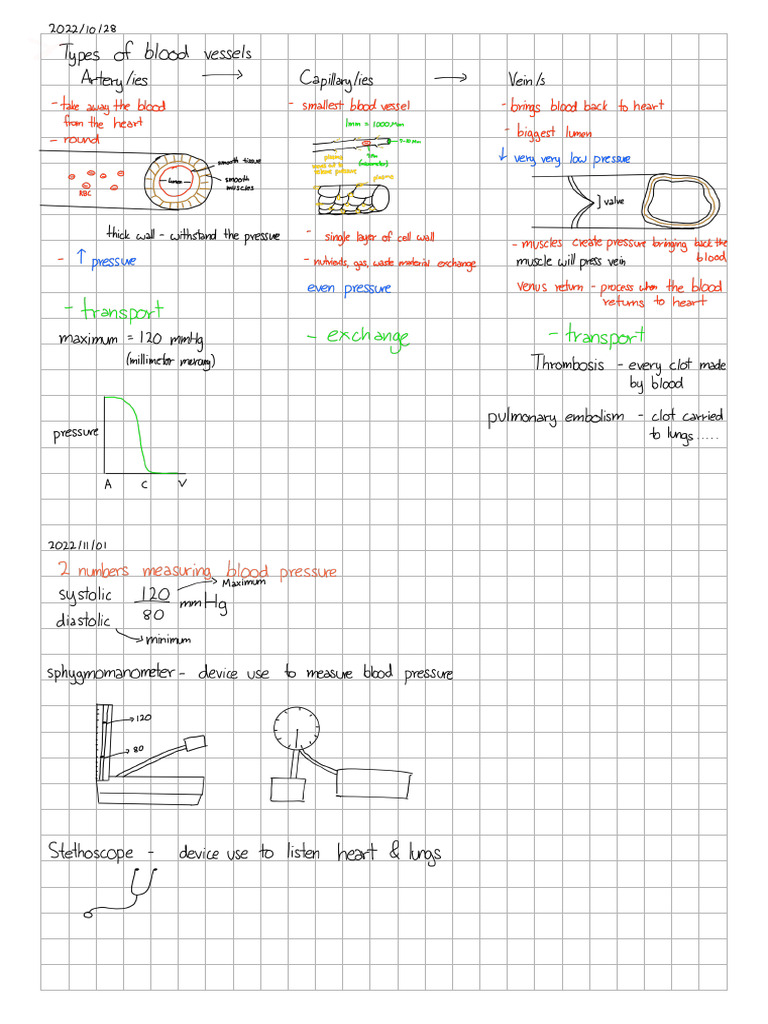 2022/10/28
Types of blood vessels
Artery/ies → Capillary/ies → Vein/s
- take away the blood
from the heart
- round
smooth tissue
lumen
smooth
muscles
RBC
thick wall - withstand the pressure
- ↑ pressure
- transport
maximum = 120 mmHg
(millimeter mercury)
pressure
A C V
- smallest blood vessel
1mm = 1000μm
7-10μm
plasma
plasma
- single layer of cell wall
- nutrients, gas, waste material exchange
even pressure
- exchange
- brings blood back to heart
- biggest lumen
↓ very very low pressure
} valve
- muscles create pressure bringing back the
blood
muscle will press vein
venus return - process when the blood
returns to heart
- transport
Thrombosis - every clot made
by blood
pulmonary embolism - clot carried
to lungs.....
2022/11/01
2 numbers measuring blood pressure
systolic 120 mmHg → Maximum
diastolic 80
→ minimum
sphygmomanometer - device use to measure blood pressure
→120
→80
Stethoscope - device use to listen heart & lungs